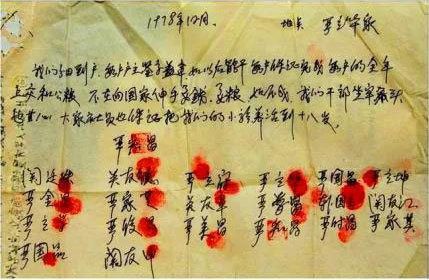 1978年12月。 地点 严立华家
我们分田到户 每户户主签字盖章 如以后能干 每户保证完成每户的全年
上交和公粮 不在向国家伸手要钱、要粮 如不成, 我们干部坐牢杀头
也甘心、大家社员也保证把我们的小孩养活到十八岁。
严宏昌
关廷珠 关友德 严立富 严立华 严国昌 严立坤
严金昌 严家芝 关友章 严学昌 韩国云 关友江
严立学 严俊昌 严美昌 严宏昌 严付昌 严家其
严国品 关友申